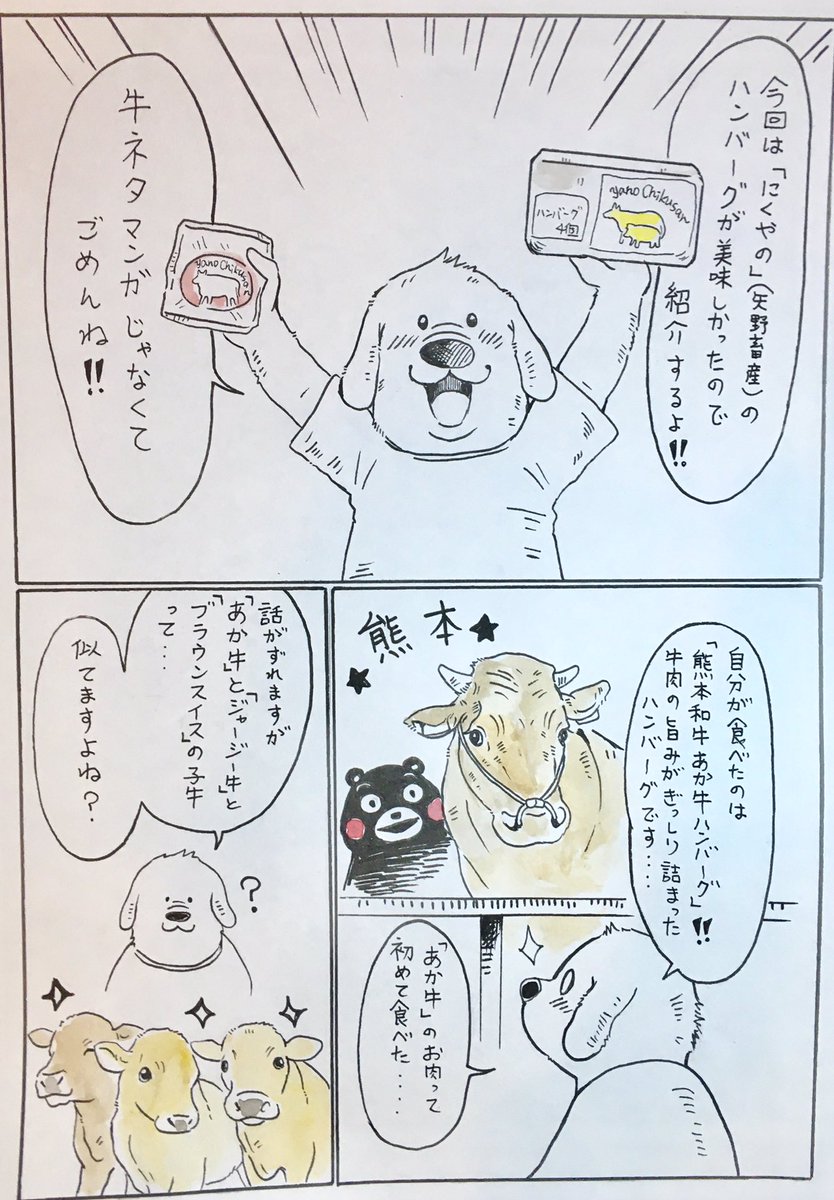 今回は「にくやの」(矢野畜産)の
ハンバーグが美味しかったので
紹介するよ!!
yano Chikusan
ハンバーグ
4個
yano Chikusan
牛ネタマンガじゃなくて
ごめんね!!
自分が食べたのは
「熊本和牛あか牛ハンバーグ」!!
牛肉の旨みがぎっしり詰まった
ハンバーグです....
熊本
「あか牛」のお肉って
初めて食べた....
話がずれますが
「あか牛」と「ジャージー牛」と
「ブラウンスイス」の子牛
って...
似てますよね?
?